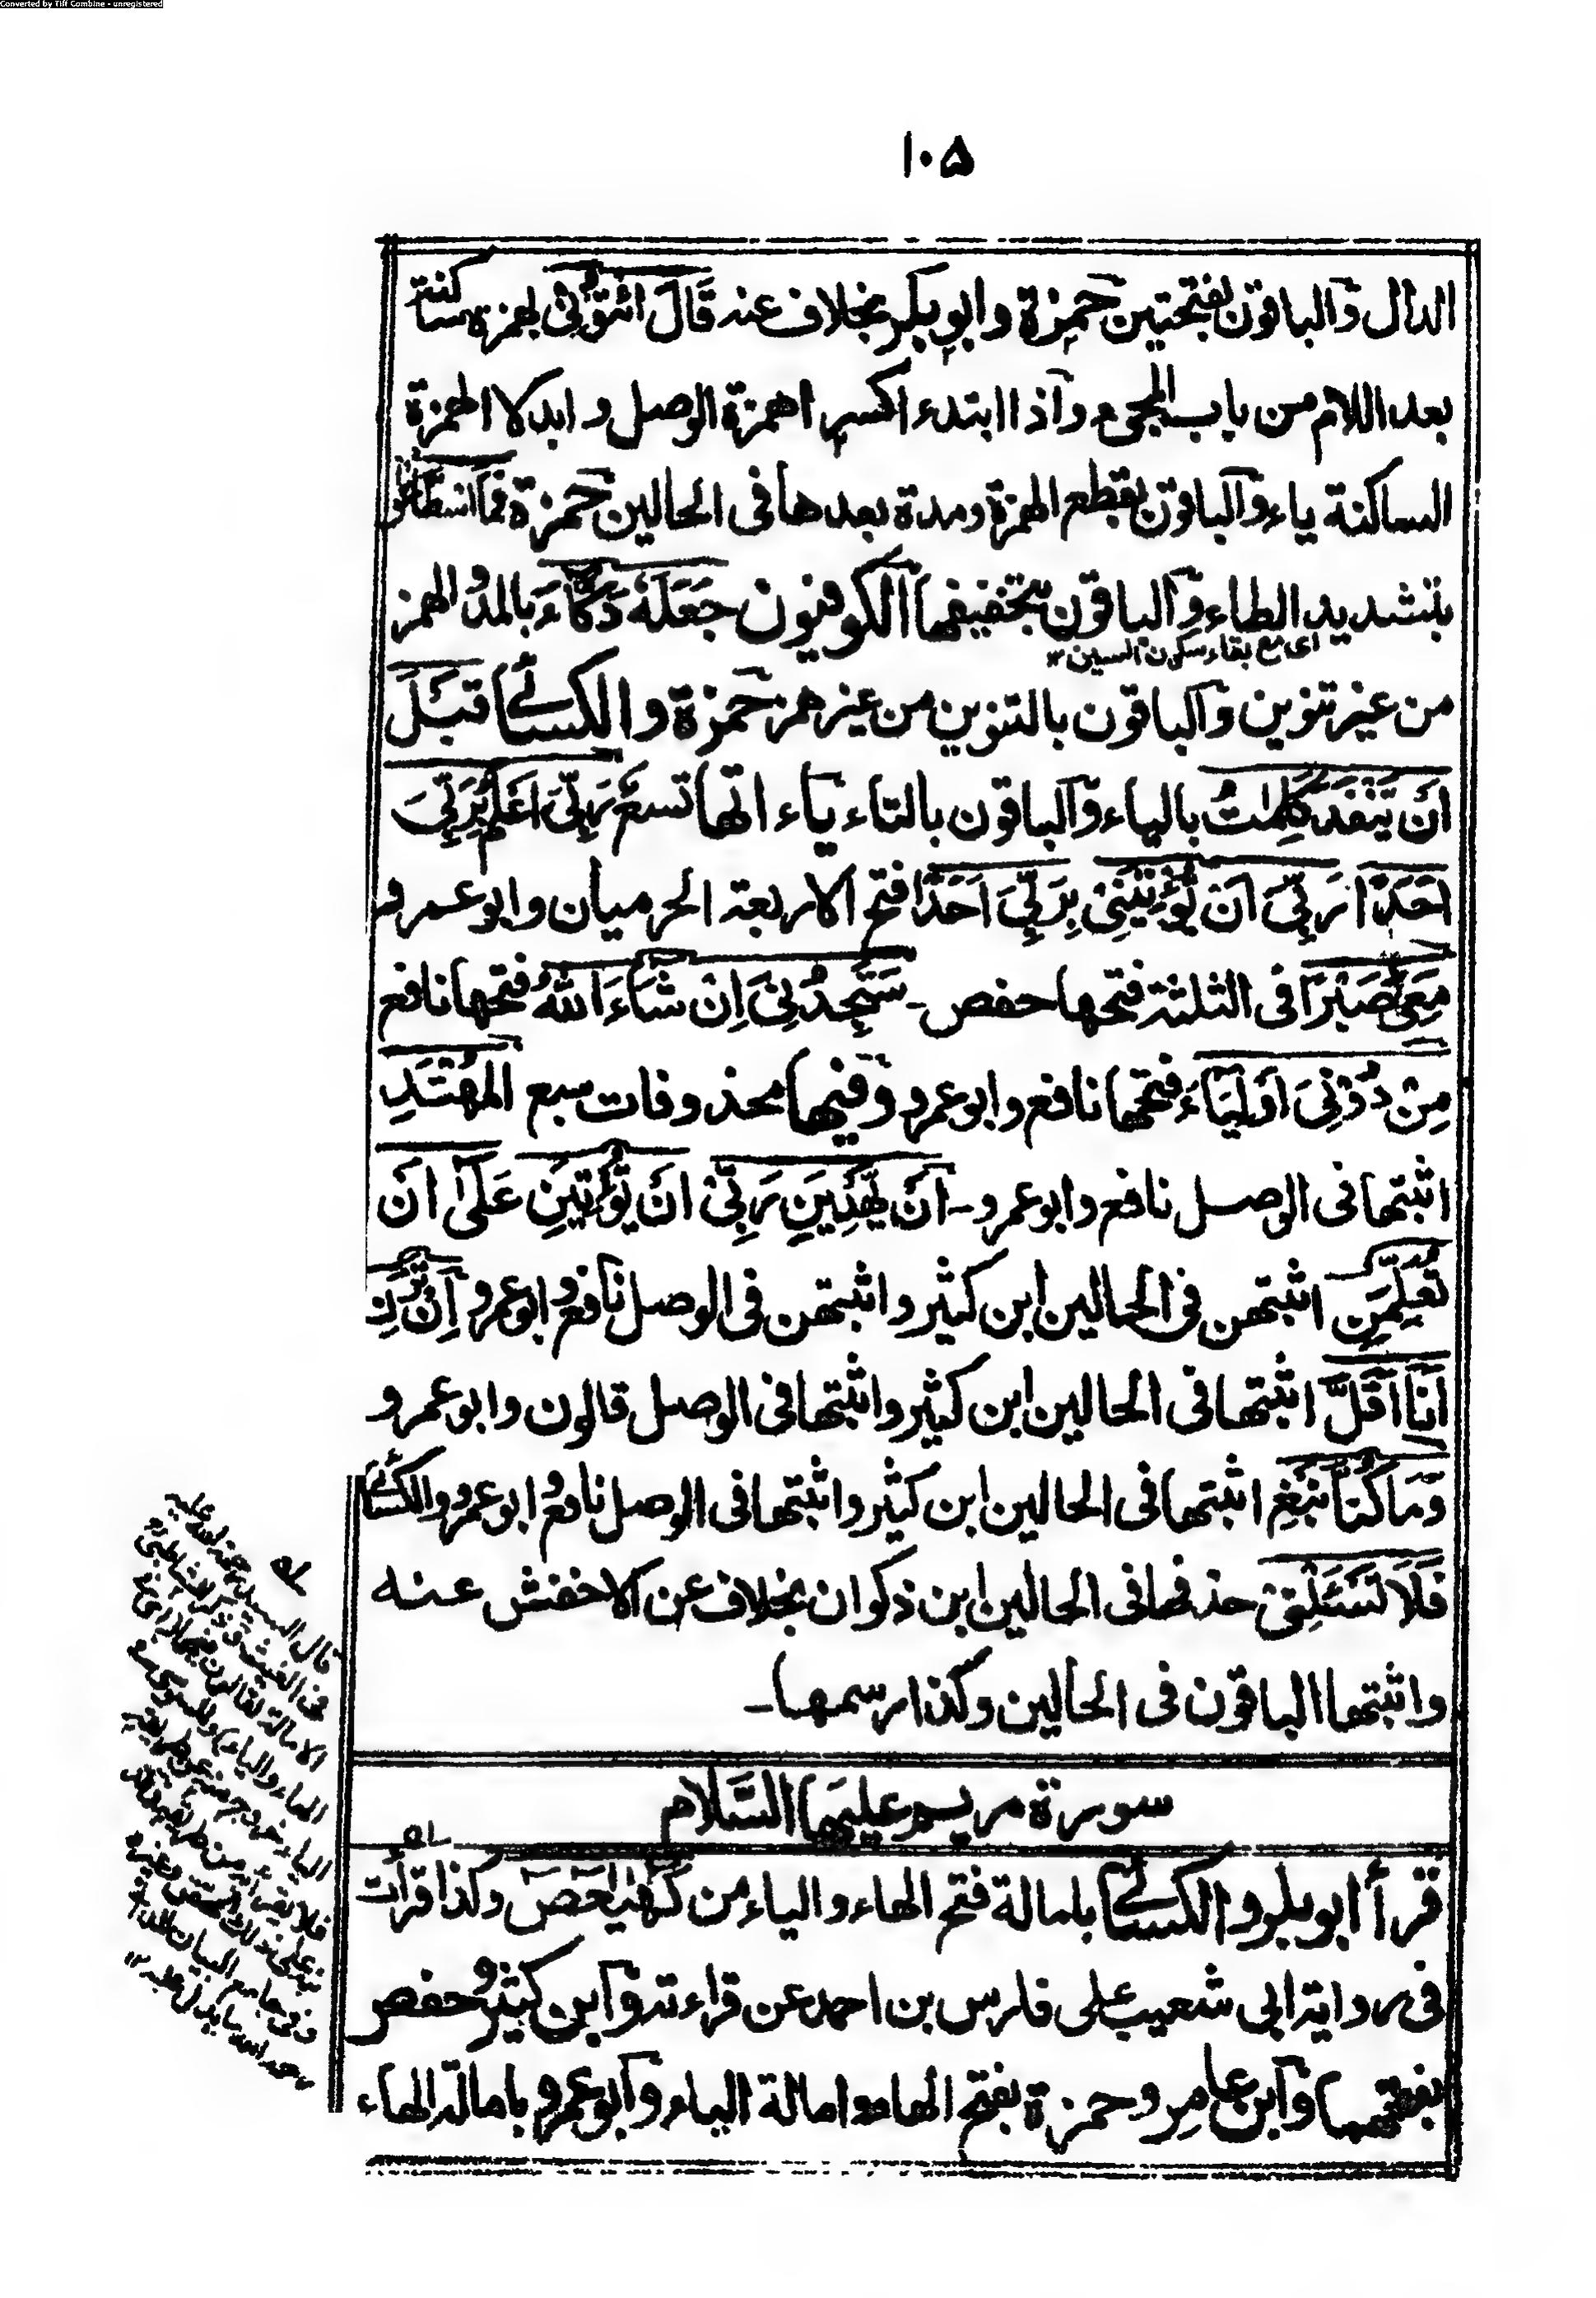 Converted by Tiff Combine - unregistered
١٠۵
الدال وَالباقون بفتحتين حمزة وابوبكر بخلاف عنه قَالَ ائْتُوْنِىْ بهمزة ساكنة
بعد اللام من باب المجىء وآذا ابتدء اكسرا همزة الوصل و ابدلا الهمزة
الساكنة ياء وآلباقون بقطع الهمزة ومدة بعدها فى الحالين حمزة فَمَا اسْطَاعُوْا
بتشديد الطاء وآلباقون بتخفيفها الكوفيون جَعَلَهٗ دَكَّاءَ بالمد والهمز
اى مع بقاء سكون السين ١٢
من غير تنوين وآلباقون بالتنوين من غير همز حمزة والكسائى قَبْلَ
اَنْ يَّنْفَدَ كَلِمٰتُ بالياء وآلباقون بالتاء ياء اتها تسع رَبِّىَ اَعْلَمُ بِرَبِّىَ
اَحَدًا رَبِّىَ اَنْ يُّؤْتِيَنِىْ بِرَبِّىَ اَحَدًا فتح الاربعة الحرميان وابوعمرو
مَعِىَ صَبْرًا فى الثلثة فتحها حفص ـ سَتَجِدُنِىْ اِنْ شَاءَ اللّٰهُ فتحها نافع
مِنْ دُوْنِىْ اَوْلِيَاءَ فتحها نافع وابوعمرو وفيها محذوفات سبع الْمُهْتَدِ
اثبتها فى الوصل نافع وابوعمرو ـ اَنْ يَّهْدِيَنِ رَبِّىْ اَنْ يُّؤْتِيَنِ عَلٰى اَنْ
تُعَلِّمَنِ اثبتهن فى الحالين ابن كثير واثبتهن فى الوصل نافع وابوعمرو اِنْ تَرَنِ
اَنَا اَقَلَّ اثبتها فى الحالين ابن كثير واثبتها فى الوصل قالون وابوعمرو
وَمَا كُنَّا نَبْغِ اثبتها فى الحالين ابن كثير واثبتها فى الوصل نافع وابوعمرو والكسائى
فَلَا تَسْئَلْنِىْ حذفها فى الحالين ابن ذكوان بخلاف عن الاخفش عنه
واثبتها الباقون فى الحالين وكذا رسمها ـ
سورة مريم عليها السَّلام
قرأ ابوبكر والكسائى بامالة فتح الهاء والياء من كٓهٰيٰعٓصٓ وكذا قرأت
فى رواية ابى شعيب على فارس بن احمد عن قراءته وآبن كثير وحفص
بفتحهما وآبن عامر وحمزة بفتح الهاء وامالة الياء وآبوعمرو بامالة الهاء
قال السيد
فى الغيث
الامالة لقالون
الهاء والياء